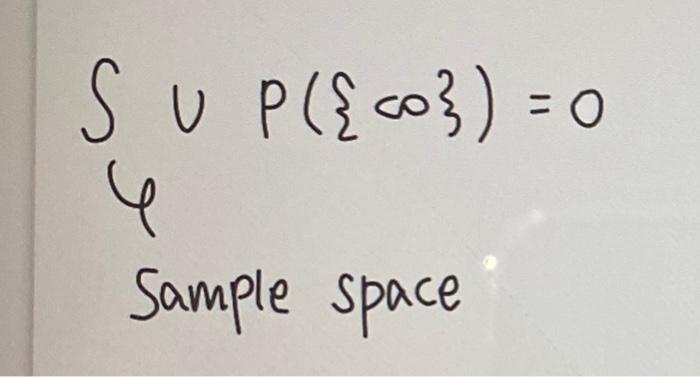 S ∪ P({∞}) = 0
φ
Sample space